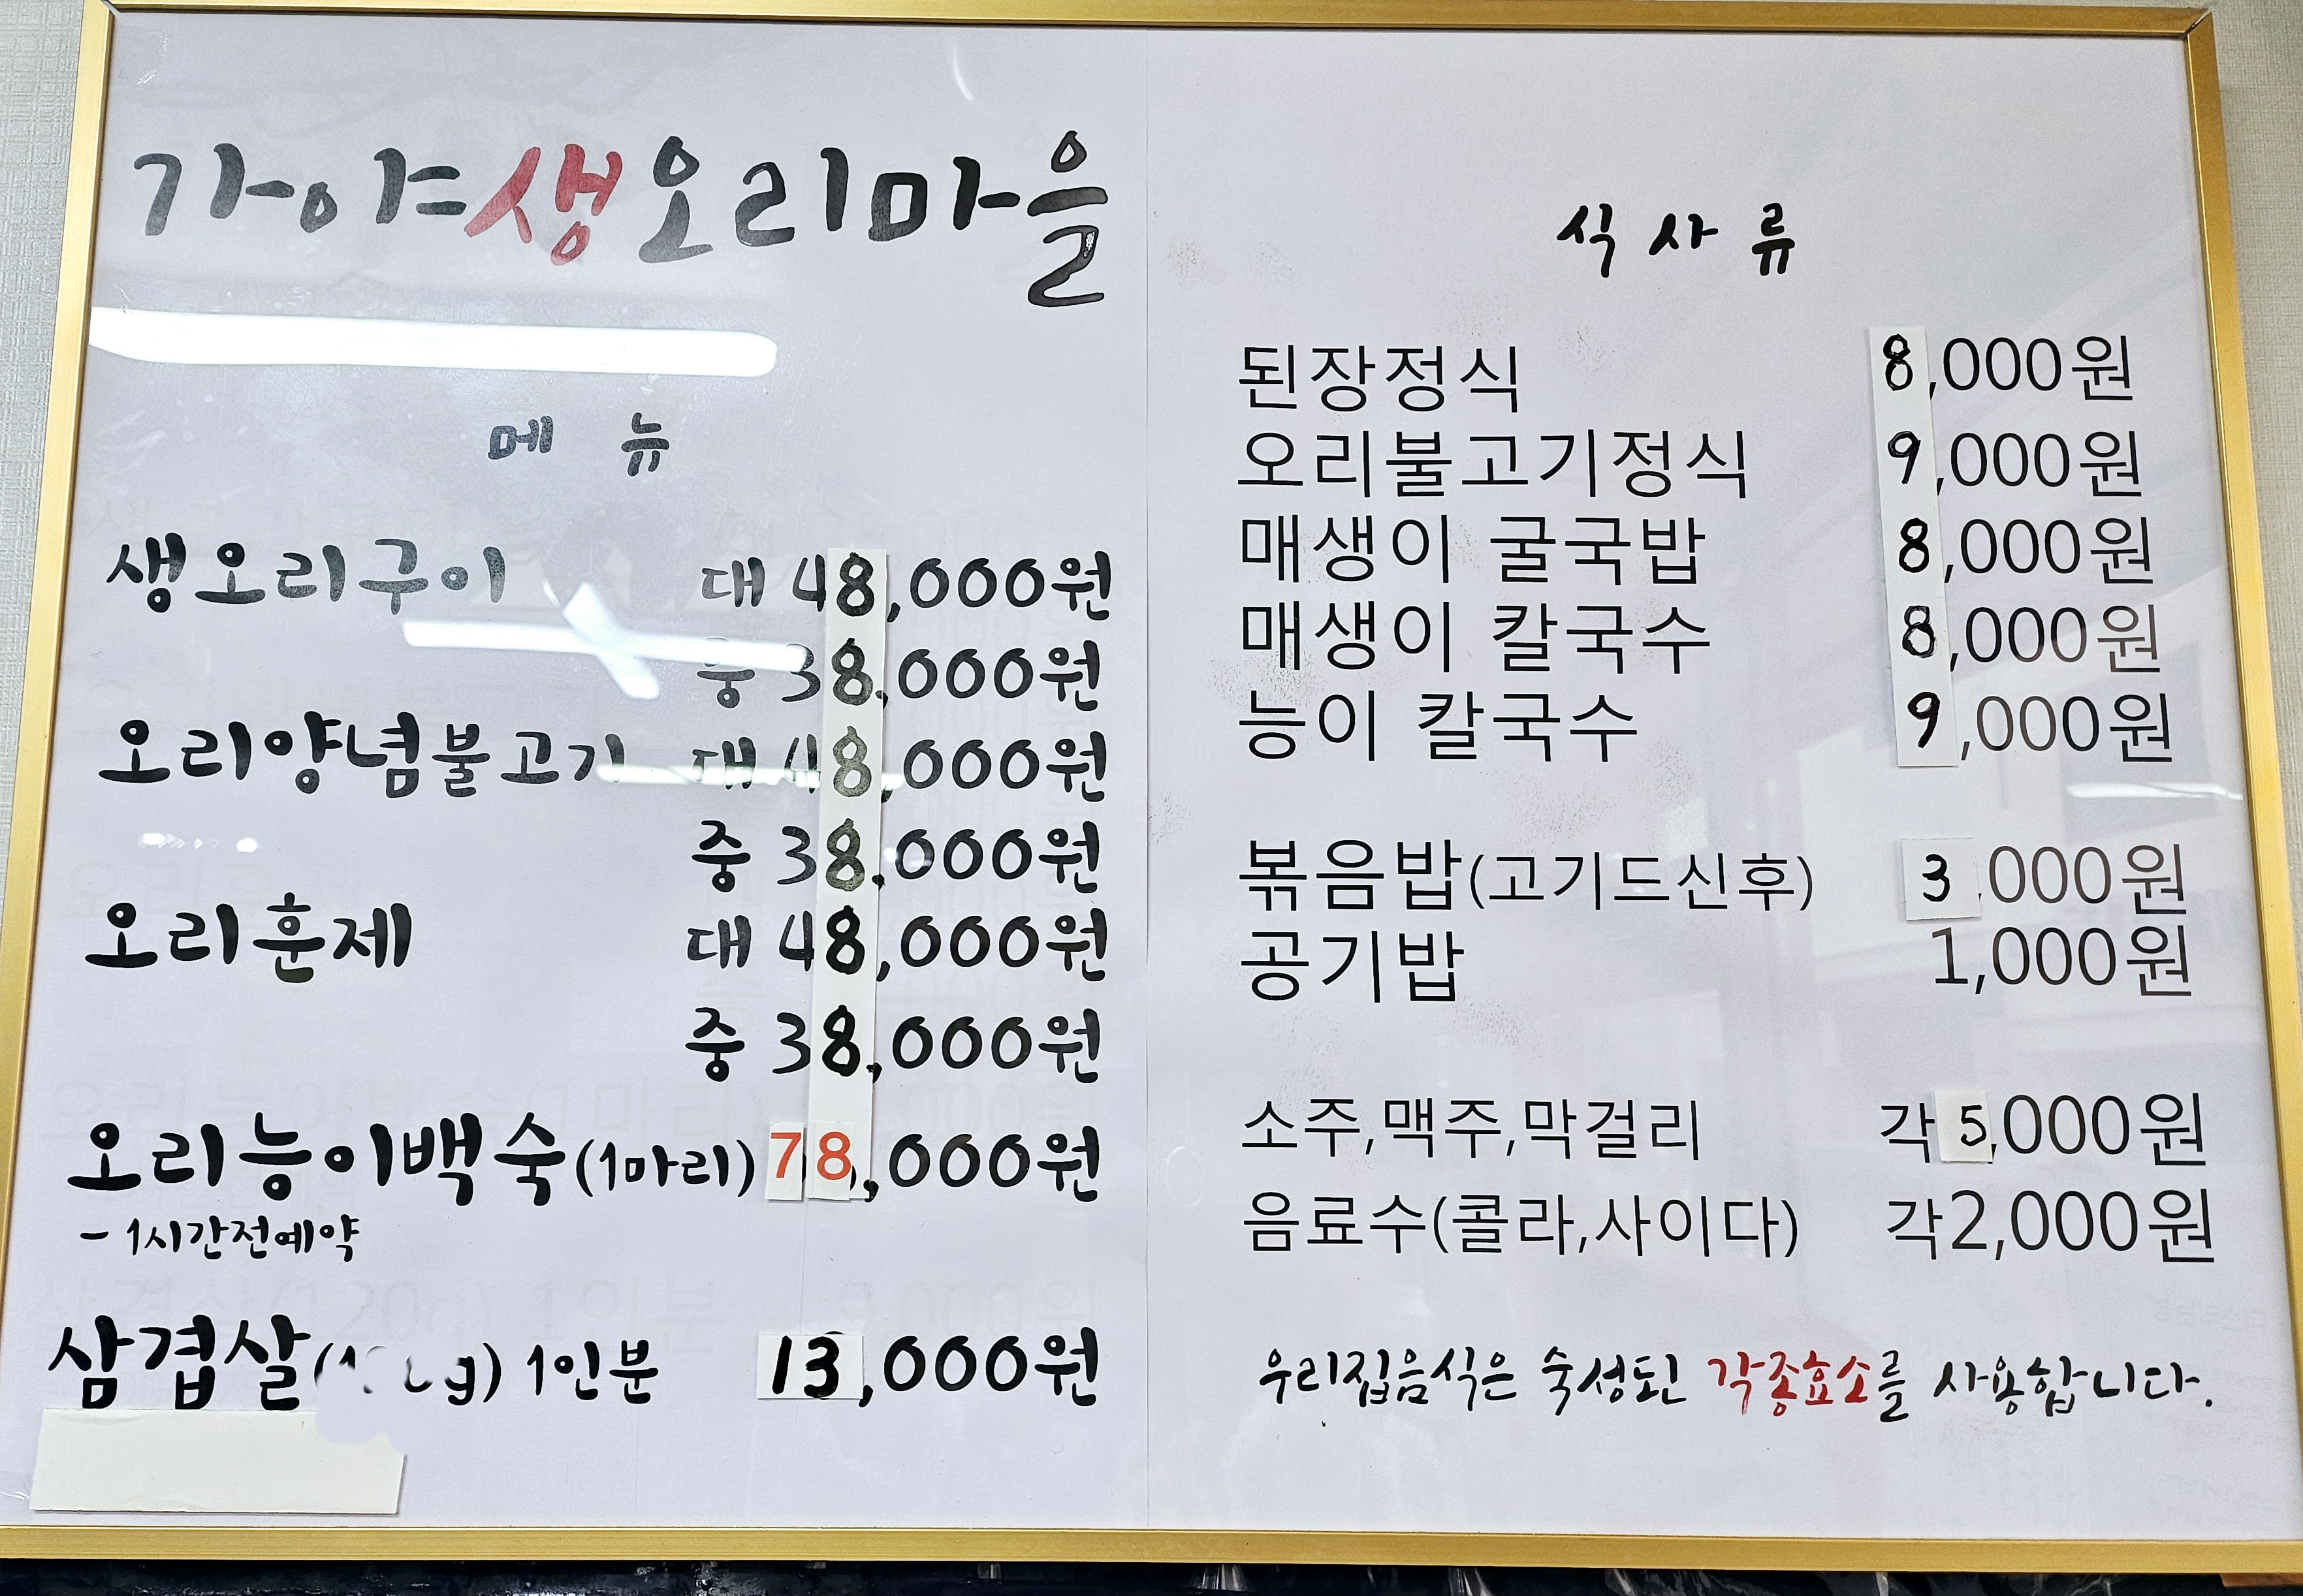 가야생오리마을
메 뉴
생오리구이 대 48,000원
중 38,000원
오리양념불고기 대 48,000원
중 38,000원
오리훈제 대 48,000원
중 38,000원
오리능이백숙(1마리) 78,000원
- 1시간전예약
삼겹살 1인분 13,000원
식 사 류
된장정식 8,000원
오리불고기정식 9,000원
매생이 굴국밥 8,000원
매생이 칼국수 8,000원
능이 칼국수 9,000원
볶음밥(고기드신후) 3,000원
공기밥 1,000원
소주,맥주,막걸리 각 5,000원
음료수(콜라,사이다) 각2,000원
우리집음식은 숙성된 각종효소를 사용합니다.